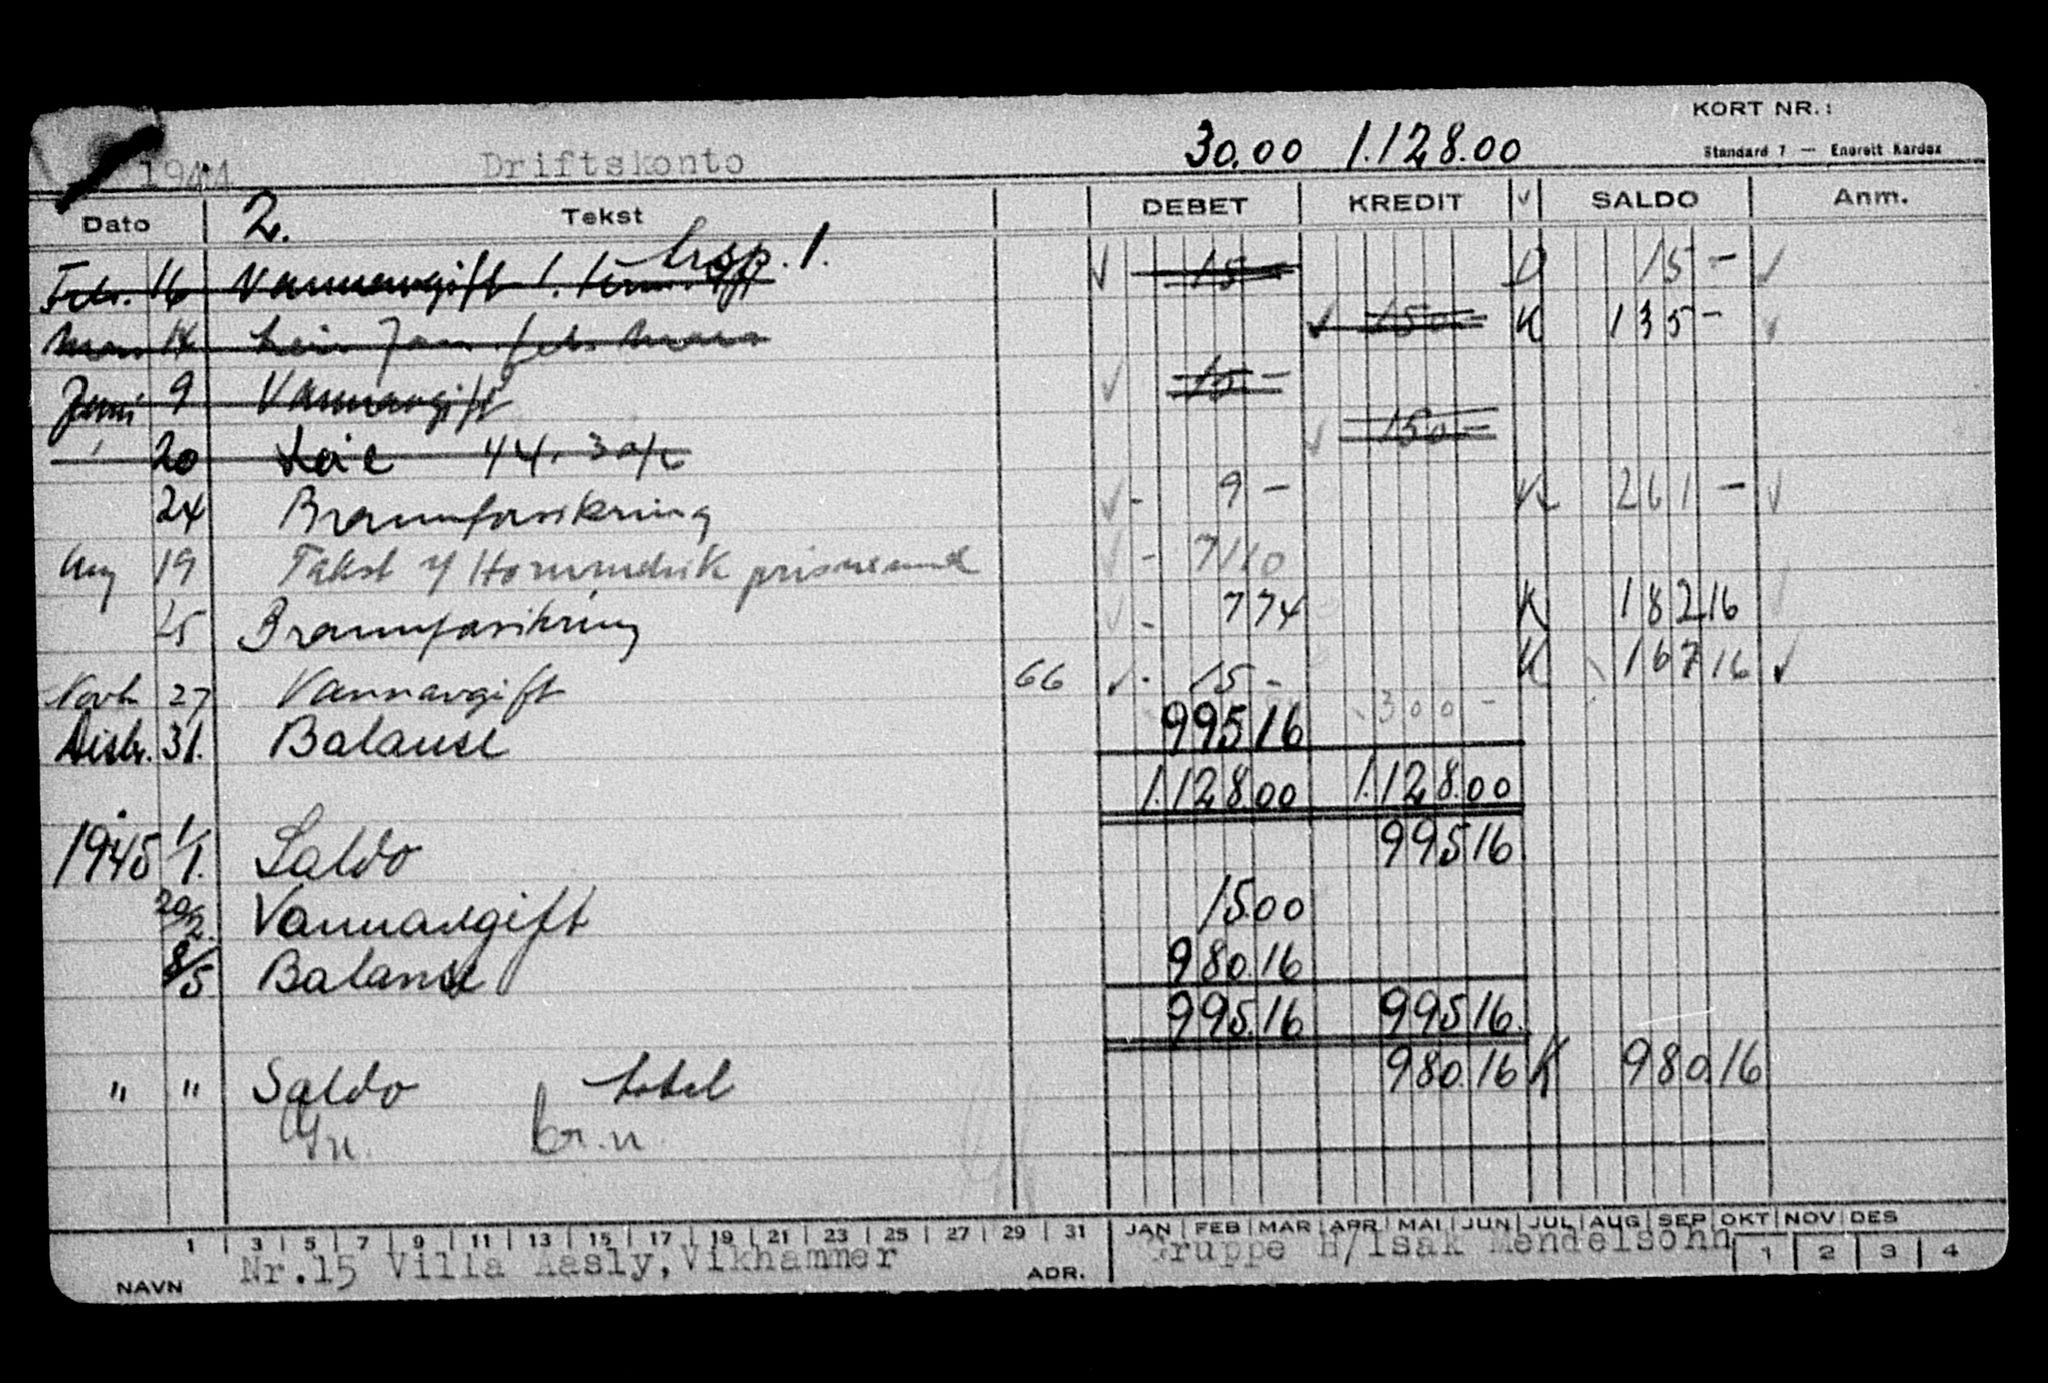 KORT NR.:
1944 Driftskonto 30.00 1.128.00 Standard 7 — Enerett Kardex
Dato 2. Tekst DEBET KREDIT √ SALDO Anm.
Trsp. 1.
Febr. 16 Vannavgift 1. term. √ 15 D 15 – √
Mars 14 Leie Jan. febr. Mars √ 150 – K 135 – √
Juni 9 Vannavgift √ 15 –
" 20 Leie 44. 30/6 √ 150 –
24 Brannforsikring √ - 9 – K 261 – √
Aug 19 Takst √ - 71 10
25 Brannforsikring √ - 7 74 K 182 16 √
Novb. 27 Vannavgift 66 √ - 15 – K 167 16 √
300 –
Desbr. 31. Balanse 995 16
1.128.00 1.128.00
1945 1/1. Saldo 995 16
20/2. Vannavgift 15 00
8/5 Balanse 980.16
995.16 995 16.
" " Saldo total 980.16 K 980.16
br.n.
1 3 5 7 9 11 13 15 17 19 21 23 25 27 29 31 JAN FEB MAR APR MAI JUN JUL AUG SEP OKT NOV DES
NAVN Nr.15 Villa Aasly, Vikhammer ADR. Gruppe H/Isak Mendelsohn 1 2 3 4